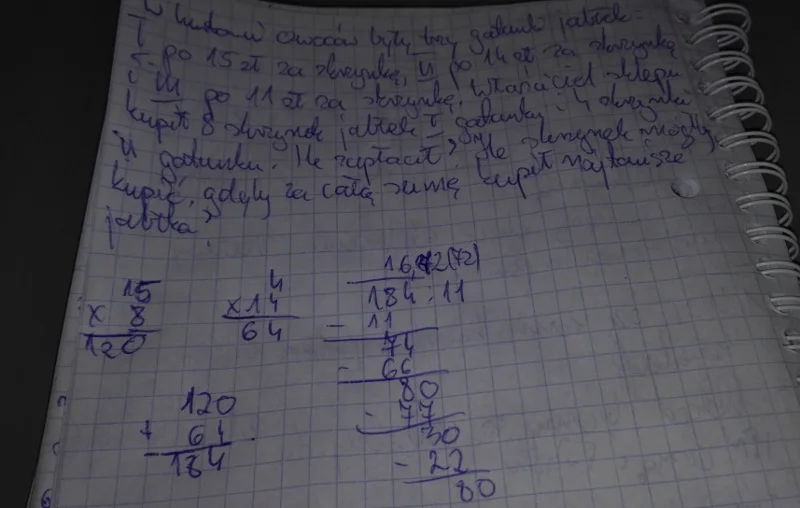 W hurtowni owoców były trzy gatunki jabłek:
I po 15 zł za skrzynkę, II po 14 zł za skrzynkę
III po 11 zł za skrzynkę. Właściciel sklepu
kupił 8 skrzynek jabłek I gatunku i 4 skrzynki
II gatunku. Ile zapłacił? Ile skrzynek mógłby
kupić, gdyby za całą sumę kupił najtańsze
jabłka?
15
x 8
120
4
x 14
64
120
+ 64
184
16,72(72)
184:11
- 11
74
- 66
80
- 77
30
- 22
80